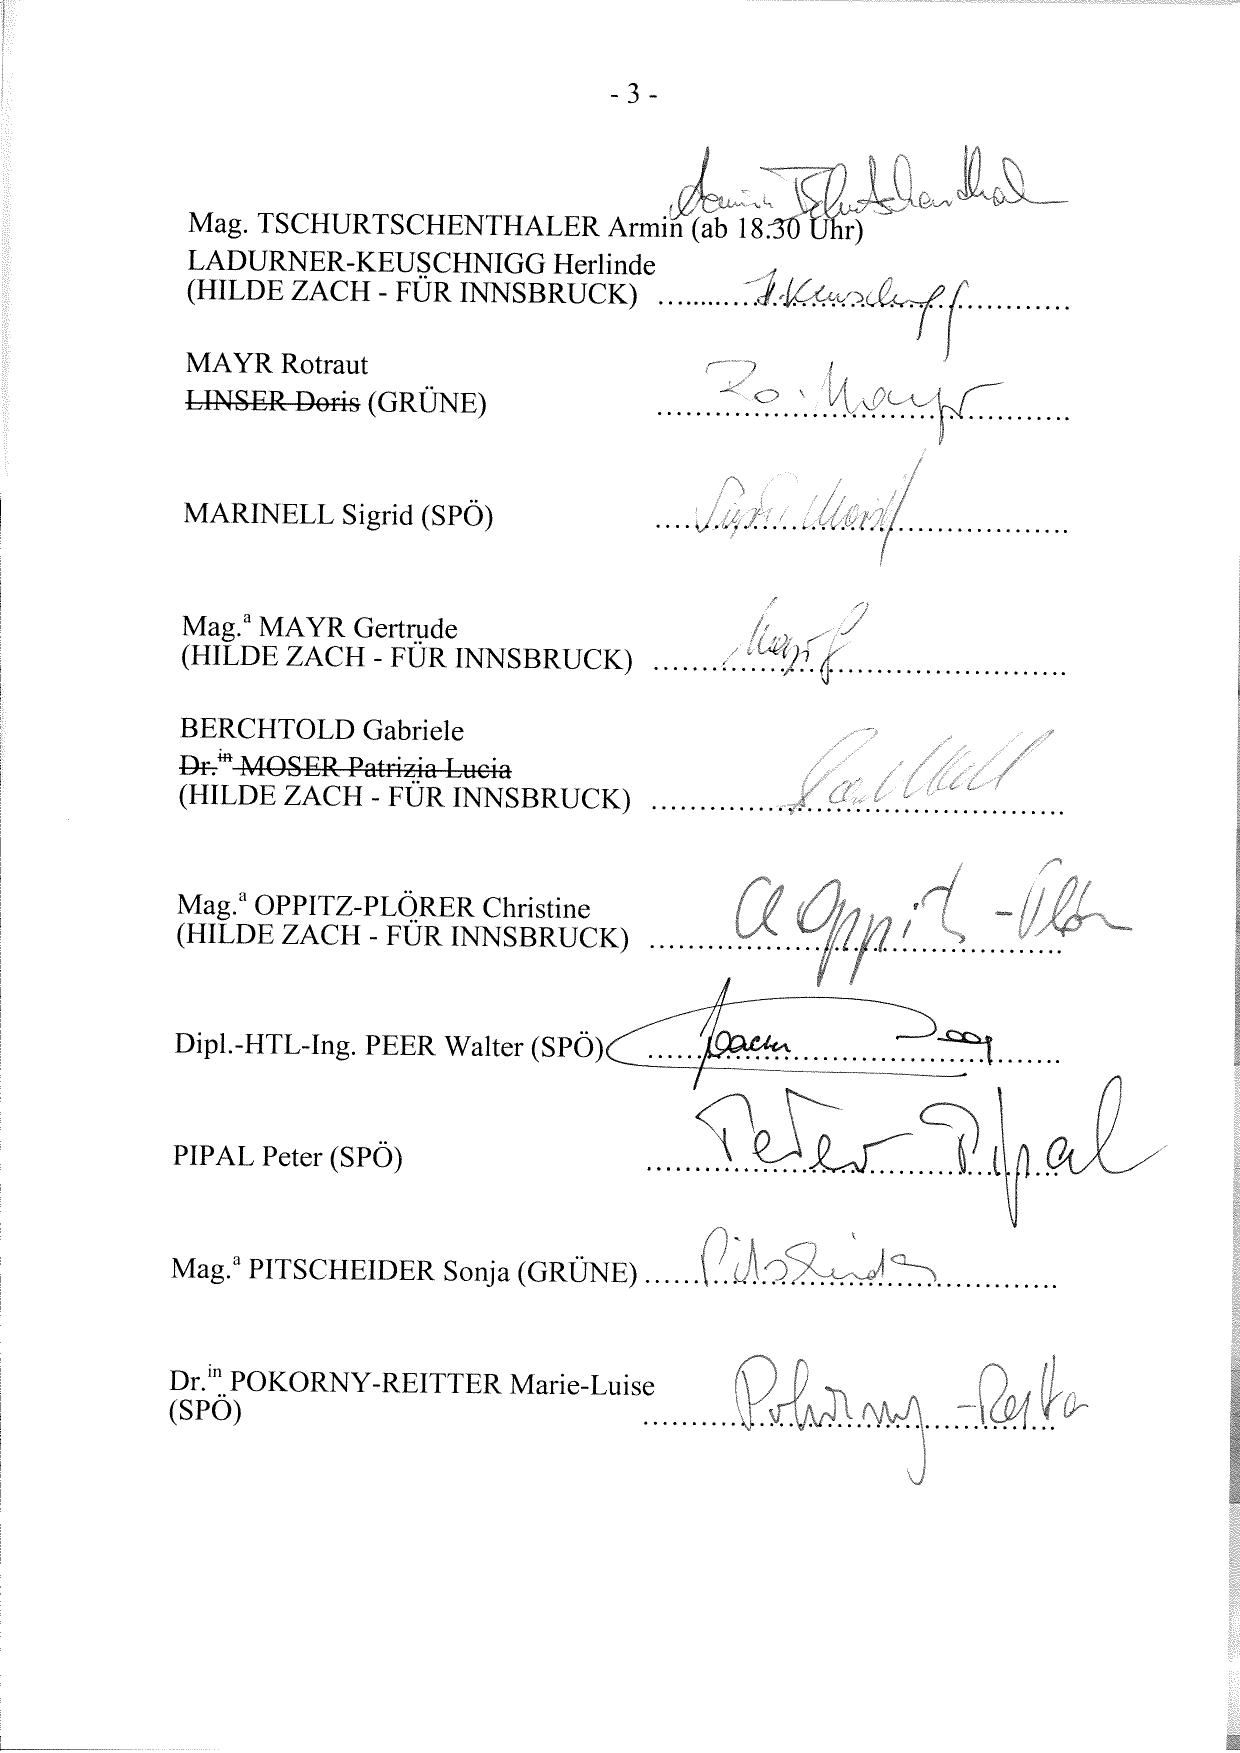 - 3 -
Armin Tschurtschenthal
Mag. TSCHURTSCHENTHALER Armin (ab 18.30 Uhr)
LADURNER-KEUSCHNIGG Herlinde
(HILDE ZACH - FÜR INNSBRUCK) ....................................
MAYR Rotraut
Ro. Mayr
LINSER Doris (GRÜNE) ....................................
MARINELL Sigrid (SPÖ) ....................................
Mag.ª MAYR Gertrude
(HILDE ZACH - FÜR INNSBRUCK) ....................................
BERCHTOLD Gabriele
Dr.in MOSER Patrizia Lucia
(HILDE ZACH - FÜR INNSBRUCK) ....................................
Mag.ª OPPITZ-PLÖRER Christine
(HILDE ZACH - FÜR INNSBRUCK) ....................................
Dipl.-HTL-Ing. PEER Walter (SPÖ) ....................................
Peter Pipal
PIPAL Peter (SPÖ) ....................................
Mag.ª PITSCHEIDER Sonja (GRÜNE) ....................................
Dr.in POKORNY-REITTER Marie-Luise
Pokorny-Reitter
(SPÖ) ....................................